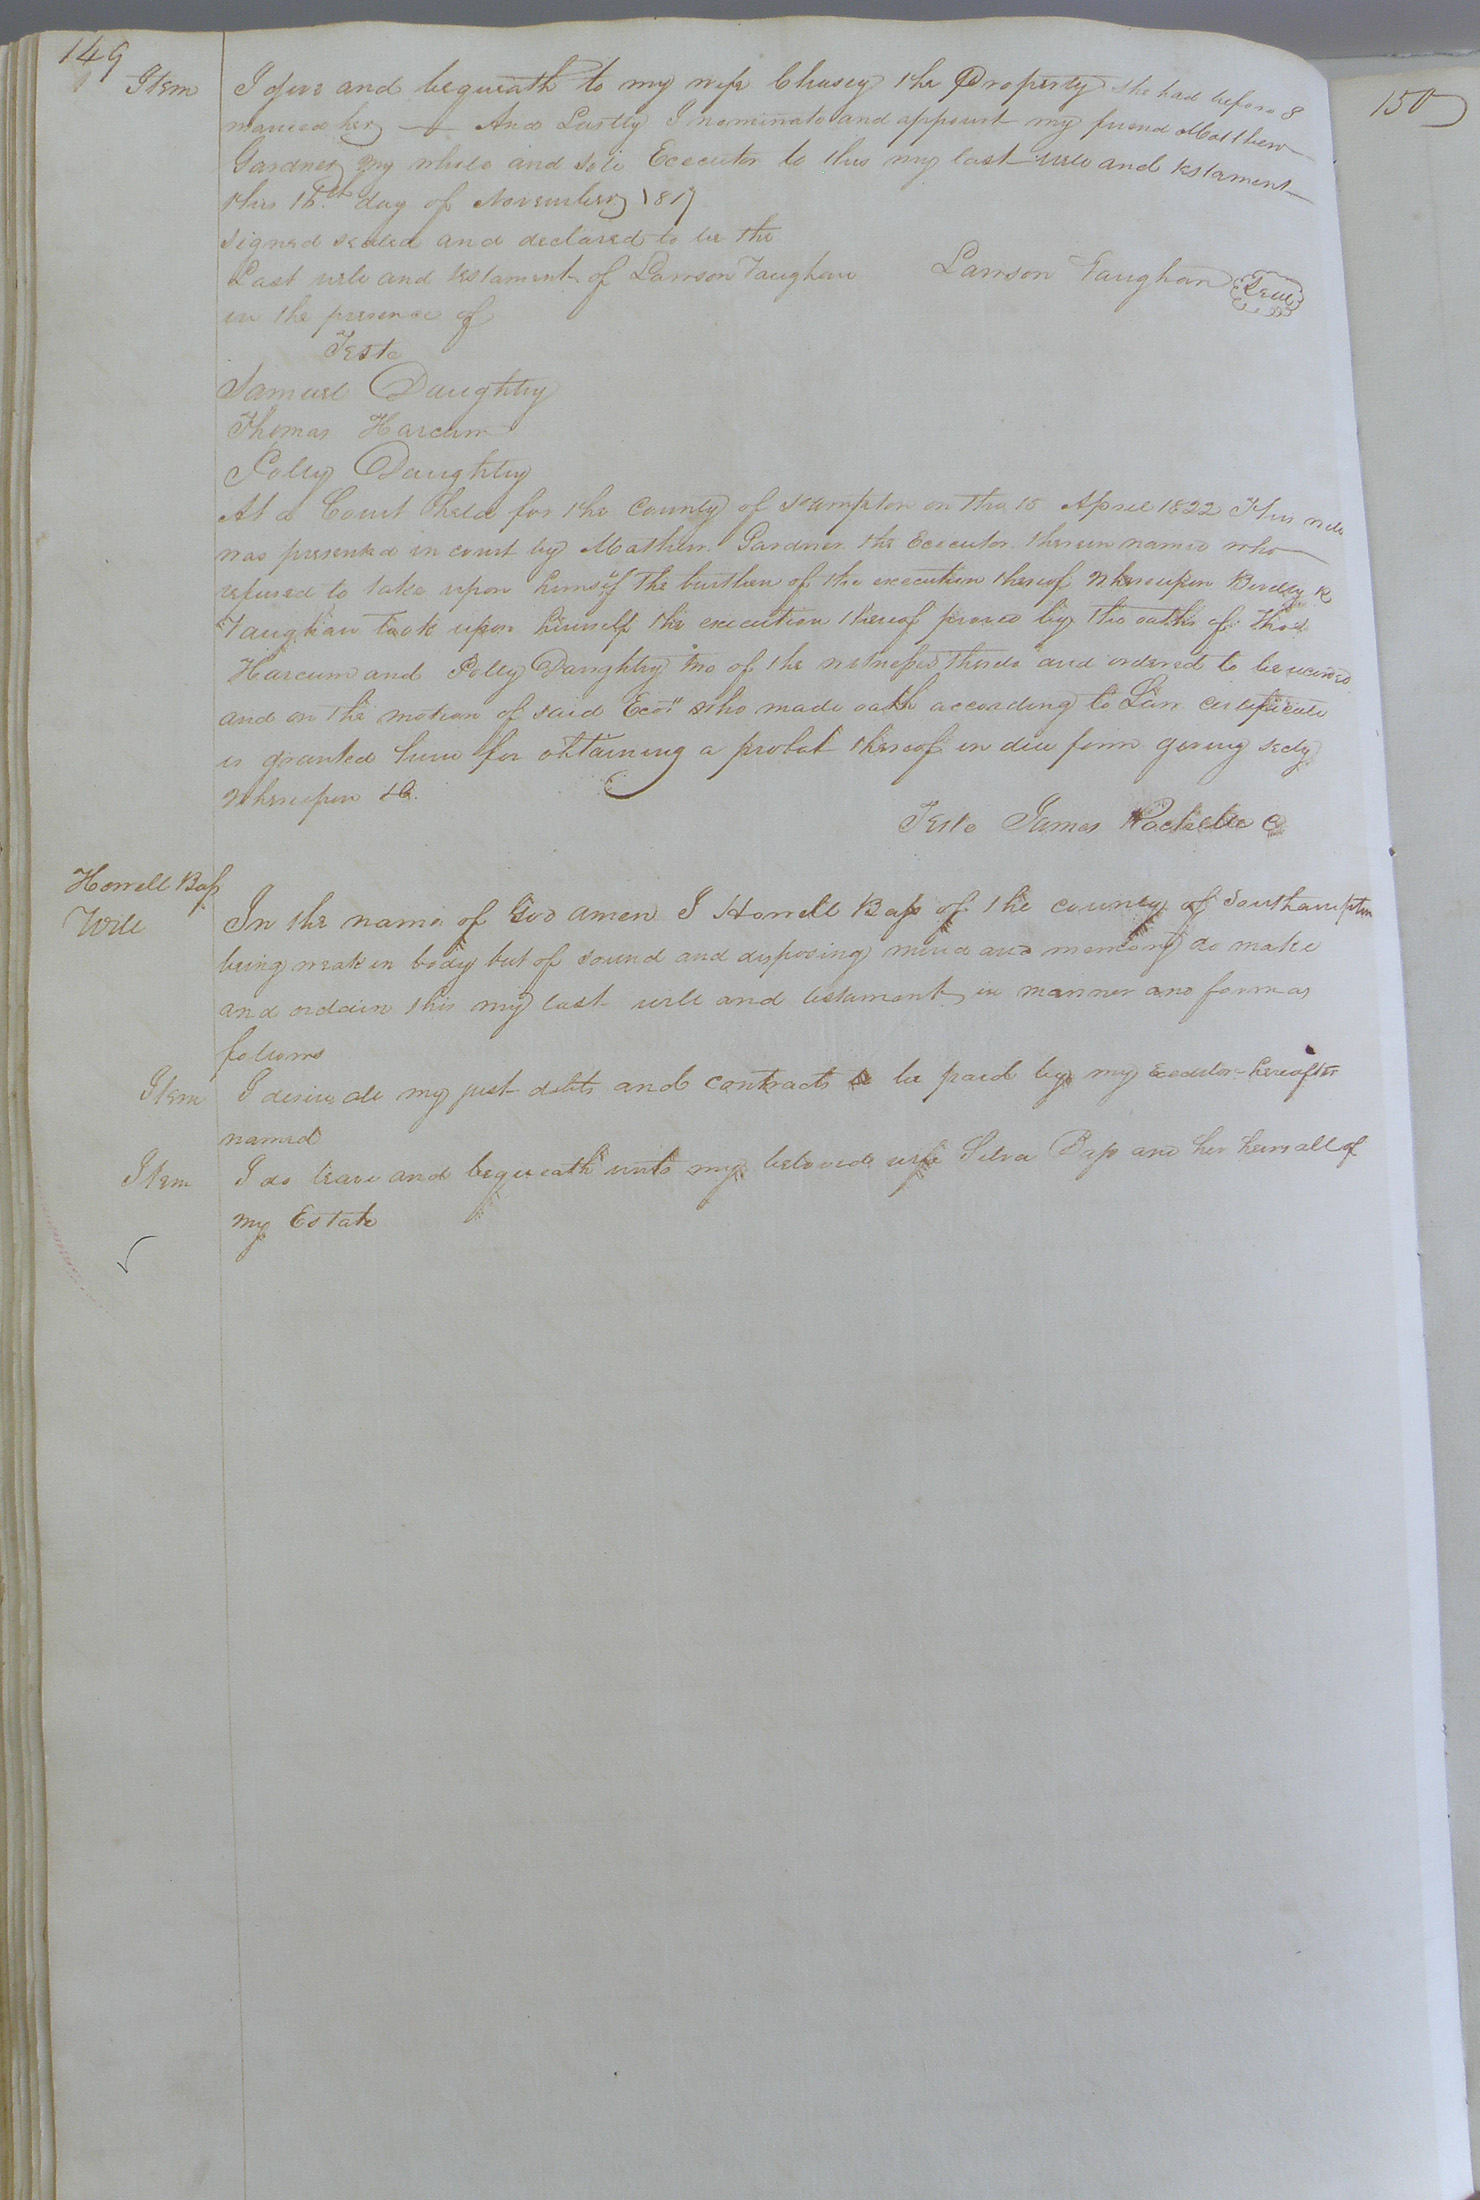 149
150
Item I give and bequeath to my wife Chasey the Property she had before I
married her — And Lastly I nominate and appoint my friend Matthew
Gardner my whole and sole Executor to this my last will and testament
this 16th day of November 1817
signed sealed and declared to be the
Last will and testament of Lawson Vaughan Lawson Vaughan Seal
in the presence of
Teste
Samuel Daughtry
Thomas Harcum
Polly Daughtry
At a Court held for the County of Sthampton on the 15 April 1822 This will
was presented in court by Mathew Gardner the Executor therein named who
refused to take upon himself the burthen of the execution thereof Whereupon R
Vaughan took upon himself the execution thereof proved by the oaths of Thos
Harcum and Polly Daughtry two of the witnesses thereto and ordered to be recorded
and on the motion of said Ecor who made oath according to Law certificate
is granted him for obtaining a probat thereof in due form giving secty
Whereupon &c.
Teste James Rochelle C
Howell Bass
Will
In the name of God amen I Howell Bass of the county of Southampton
being weak in body but of sound and disposing mind and memory do make
and ordain this my last will and testament in manner and form as
follows
Item I desire all my just debts and contracts to be paid by my Executor hereafter
named
Item I do leave and bequeath unto my beloved wife Silva Bass and her heirs all of
my Estate